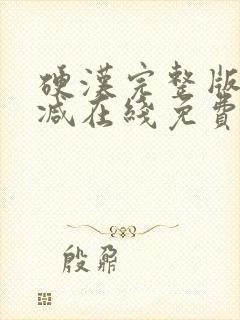 硬漢完整版
減在綫免費
殷鼐